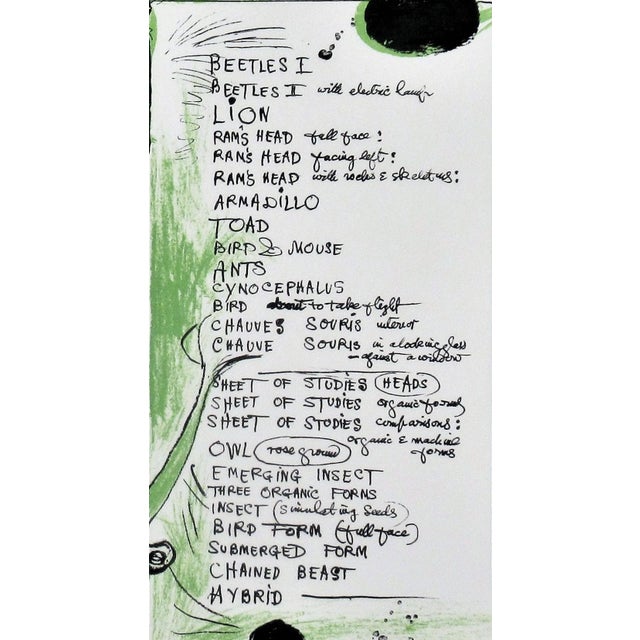 BEETLES I
BEETLES II with electric lamp
LION
RAM'S HEAD full face:
RAM'S HEAD facing left:
RAM'S HEAD with rocks & skeletons:
ARMADILLO
TOAD
BIRD & MOUSE
ANTS
CYNOCEPHALUS
BIRD about to take flight
CHAUVES SOURIS interior
CHAUVE SOURIS in a looking glass
- against a window
SHEET OF STUDIES (HEADS)
SHEET OF STUDIES organic forms
SHEET OF STUDIES comparisons:
organic & machine
forms
OWL (rose ground)
EMERGING INSECT
THREE ORGANIC FORMS
INSECT (simulating seeds)
BIRD FORM (full face)
SUBMERGED FORM
CHAINED BEAST
HYBRID